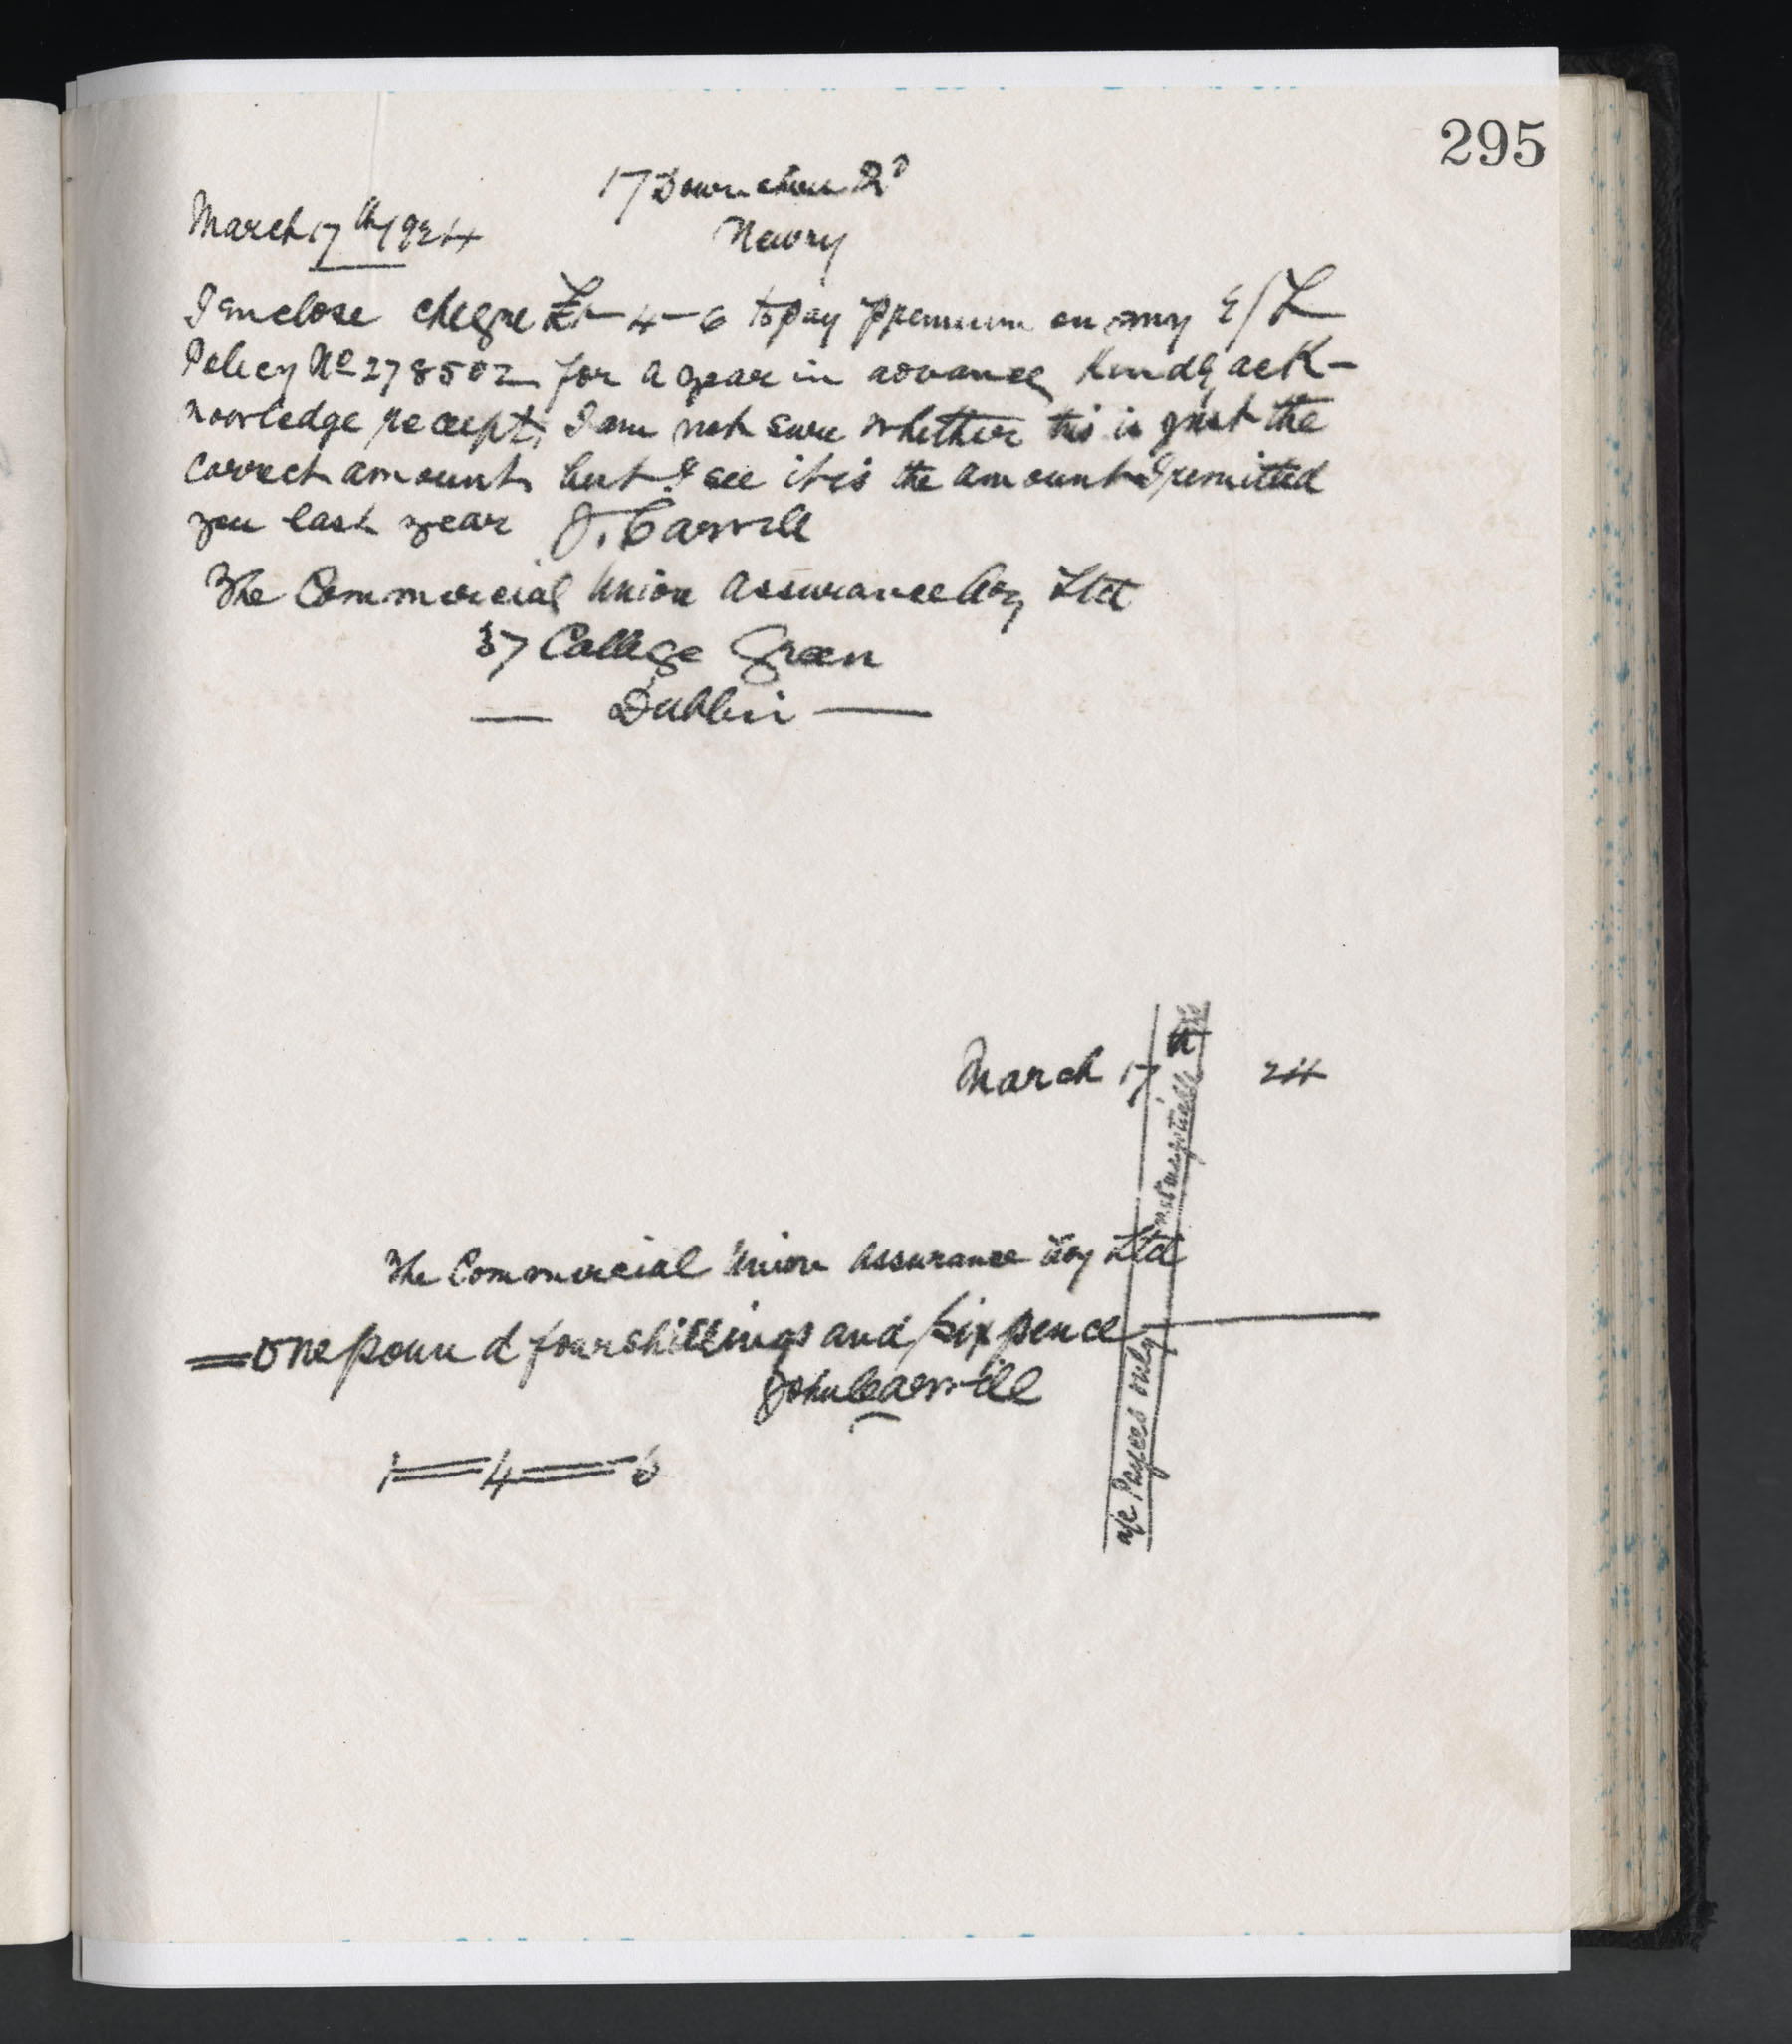 295
17 Downshire Rd
March 17th 1924
Newry
I enclose cheque £1-4-6 to pay premium on my E/L
Policy No 278502 for a year in advance Kindly ack-
nowledge receipt, I am not sure whether this is just the
correct amount, but I see it is the amount I remitted
you last year J. Carvill
The Commercial Union Assurance Coy Ltd
37 College Green
— Dublin —
March 17th 24
not negotiable
The Commercial Union Assurance Coy Ltd
= One pound four shillings and six pence —
John Carvill
a/c Payees only
1=4=6